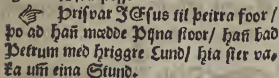 ☞ Prisvar JEsus til þeirra foor /
þo ad hañ mædde Pijna stoor / hañ bad
Petrum med hriggre Lund / hia sier va-
ka um̃ eina Stund.